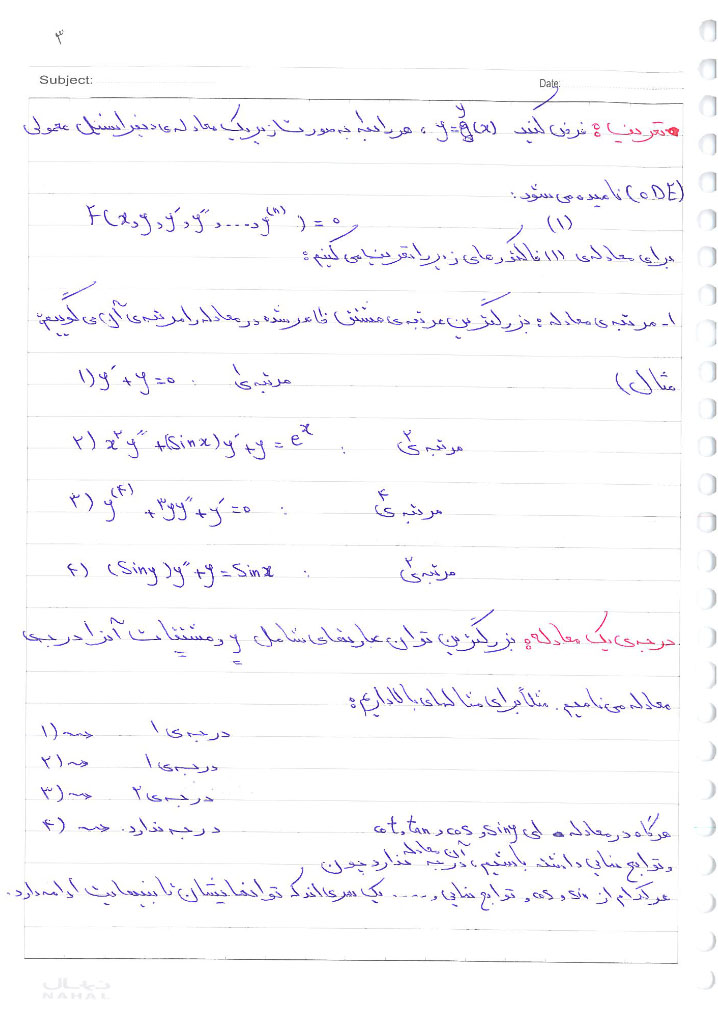 ۳
Subject:
Date:
تعریف: فرض کنید y=y(x) ، هر رابطه به صورت زیر یک معادله‌ی دیفرانسیل معمولی
(ODE) نامیده می‌شود:
F(x,y,y′,y″,....,y⁽ⁿ⁾) = 0 (1)
برای معادله‌ی (1) فاکتورهای زیر را تعریف می‌کنیم:
۱- مرتبه‌ی معادله: بزرگترین مرتبه‌ی مشتق ظاهر شده در معادله را مرتبه‌ی آن می‌گوییم:
مثال)
۱) y′+y=0 : مرتبه‌ی ۱
۲) x²y″+(Sinx)y′+y=eˣ : مرتبه‌ی ۲
۳) y⁽⁴⁾+۳yy″+y′=0 : مرتبه‌ی ۴
۴) (Siny)y″+y=Sinx : مرتبه‌ی ۲
درجه‌ی یک معادله: بزرگترین توان عبارتهای شامل y و مشتقات آنرا درجه‌ی
معادله می‌نامیم. مثلاً برای مثالهای بالا داریم:
۱) ⇝ درجه‌ی ۱
۲) ⇝ درجه‌ی ۱
۳) ⇝ درجه‌ی ۲
۴) ⇝ درجه ندارد.
هرگاه در معادله ای siny و cos و tan و cot
و توابع نمایی داشته باشیم، آن معادله درجه ندارد چون
هر کدام از sin و cos و توابع نمایی و .... یک سری‌اند که توانهایشان تا بینهایت ادامه دارد.
نهال
NAHAL